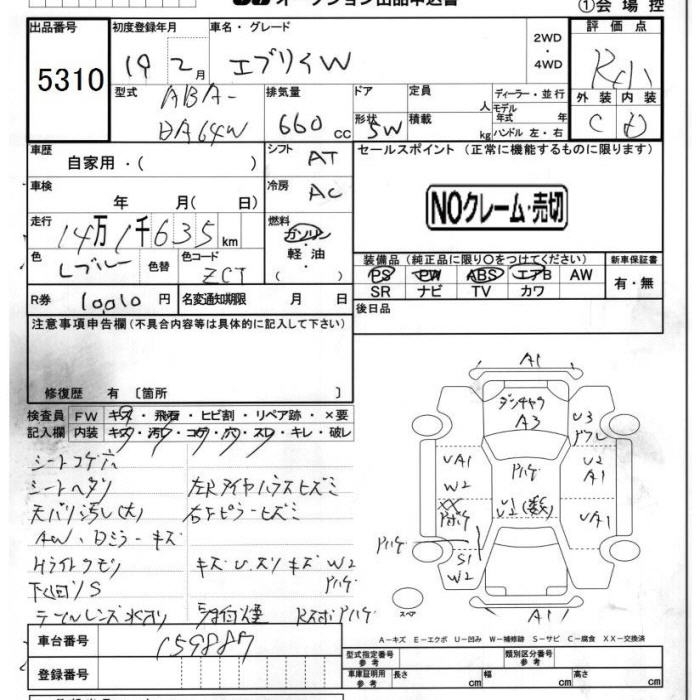 オークション出品申込書
①会場控
出品番号 初度登録年月 車名・グレード 2WD・4WD 評価点
5310 19 2月 エブリイW R小
型式 ABA-DA64W 排気量 660cc ドア 形状 5W 定員 人 積載 kg ディーラー・並行 モデル年式 年 ハンドル 左・右 外装 C 内装 D
車歴 自家用・( ) シフト AT セールスポイント (正常に機能するものに限ります)
車検 年 月( 日) 冷房 AC
NOクレーム・売切
走行 14万1千635km 燃料 ガソリン 軽油 ( )
色 Lブルー 色替 色コード ZCT
装備品 (純正品に限り○をつけてください) 新車保証書
PS PW ABS エアB AW 有・無
SR ナビ TV カワ
R券 10010円 名変通知期限 月 日
後日品
注意事項申告欄(不具合内容等は具体的に記入して下さい)
修復歴 有 〔箇所 〕
検査員 FW キズ・飛石・ヒビ割・リペア跡・×要
記入欄 内装 キズ・汚レ・コゲ・穴・スレ・キレ・破レ
シートコゲ穴
シートヘタリ 左Rタイヤハウスヒズミ
天バリ汚レ(大) 右下ピラーヒズミ
AW・Dミラーキズ
Hライトクモリ キズ U.スリキズ W2
下回リS Pハゲ
テールレンズ水入リ Rスポ Pハゲ
A1
ダンキャク
A3
U3
UA1
W2
Pハゲ
U2
A1
XX
U1(数)
UA1
Pハゲ
S1
W2
A1
スペア
A-キズ E-エクボ U-凹み W-補修跡 S-サビ C-腐食 XX-交換済
車台番号 159887
登録番号
型式指定番号 参考 類別区分番号 参考
車庫証明用 参考 長さ cm 幅 cm 高さ cm